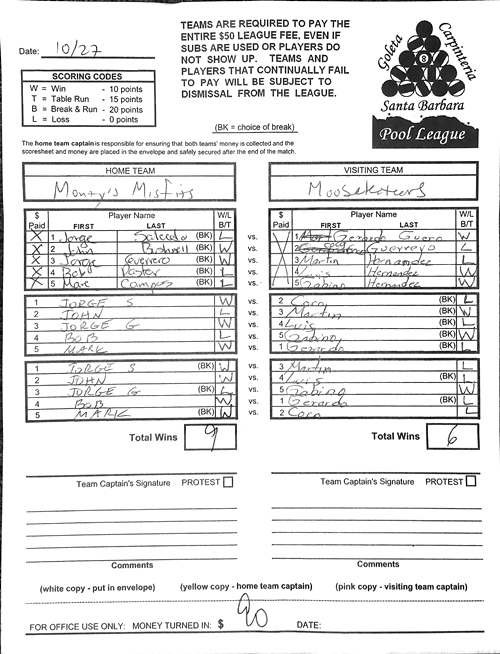 Date: 10/27
TEAMS ARE REQUIRED TO PAY THE
ENTIRE $50 LEAGUE FEE, EVEN IF
SUBS ARE USED OR PLAYERS DO
NOT SHOW UP. TEAMS AND
PLAYERS THAT CONTINUALLY FAIL
TO PAY WILL BE SUBJECT TO
DISMISSAL FROM THE LEAGUE.
(BK = choice of break)
SCORING CODES
W = Win - 10 points
T = Table Run - 15 points
B = Break & Run - 20 points
L = Loss - 0 points
Goleta
Carpinteria
8
Santa Barbara
Pool League
The home team captain is responsible for ensuring that both teams' money is collected and the
scoresheet and money are placed in the envelope and safely secured after the end of the match.
HOME TEAM VISITING TEAM
Monty's Misfits Moosekateers
$ Paid Player Name FIRST LAST W/L B/T $ Paid Player Name FIRST LAST W/L B/T
X 1 Jorge Salcedo (BK) L vs. 1 Gerardo Guero W
X 2 John (BK) W vs. 2 Coco Guerrero L
X 3 Jorge Guerrero (BK) W vs. 3 Martin Hernandez L
X 4 Bob (BK) L vs. 4 Luis Hernandez W
X 5 Marc Campos (BK) L vs. 5 Sabino Hernandez W
1 JORGE S W vs. 2 Coco (BK) L
2 JOHN L vs. 3 Martin (BK) W
3 JORGE G W vs. 4 Luis (BK) L
4 BOB L vs. 5 Sabino (BK) W
5 MARK W vs. 1 Gerardo (BK) L
1 JORGE S (BK) W vs. 3 Martin L
2 JOHN W vs. 4 Luis (BK) L
3 JORGE G (BK) L vs. 5 Sabino W
4 BOB W vs. 1 Gerardo (BK) L
5 MARK (BK) W vs. 2 Coco L
Total Wins 9 Total Wins 6
Team Captain's Signature PROTEST Team Captain's Signature PROTEST
Comments Comments
(white copy - put in envelope) (yellow copy - home team captain) (pink copy - visiting team captain)
FOR OFFICE USE ONLY: MONEY TURNED IN: $ 90 DATE: